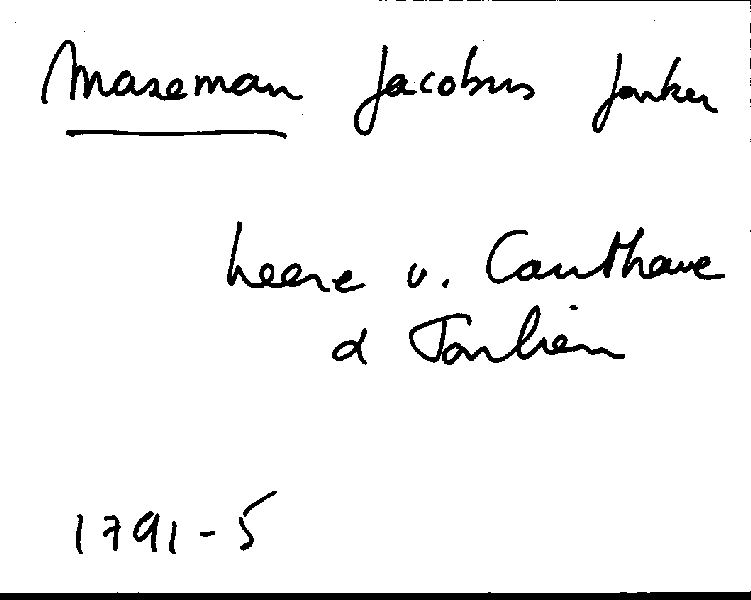 Maseman Jacobus Jonker
heere v. Couthove
d
1791-5